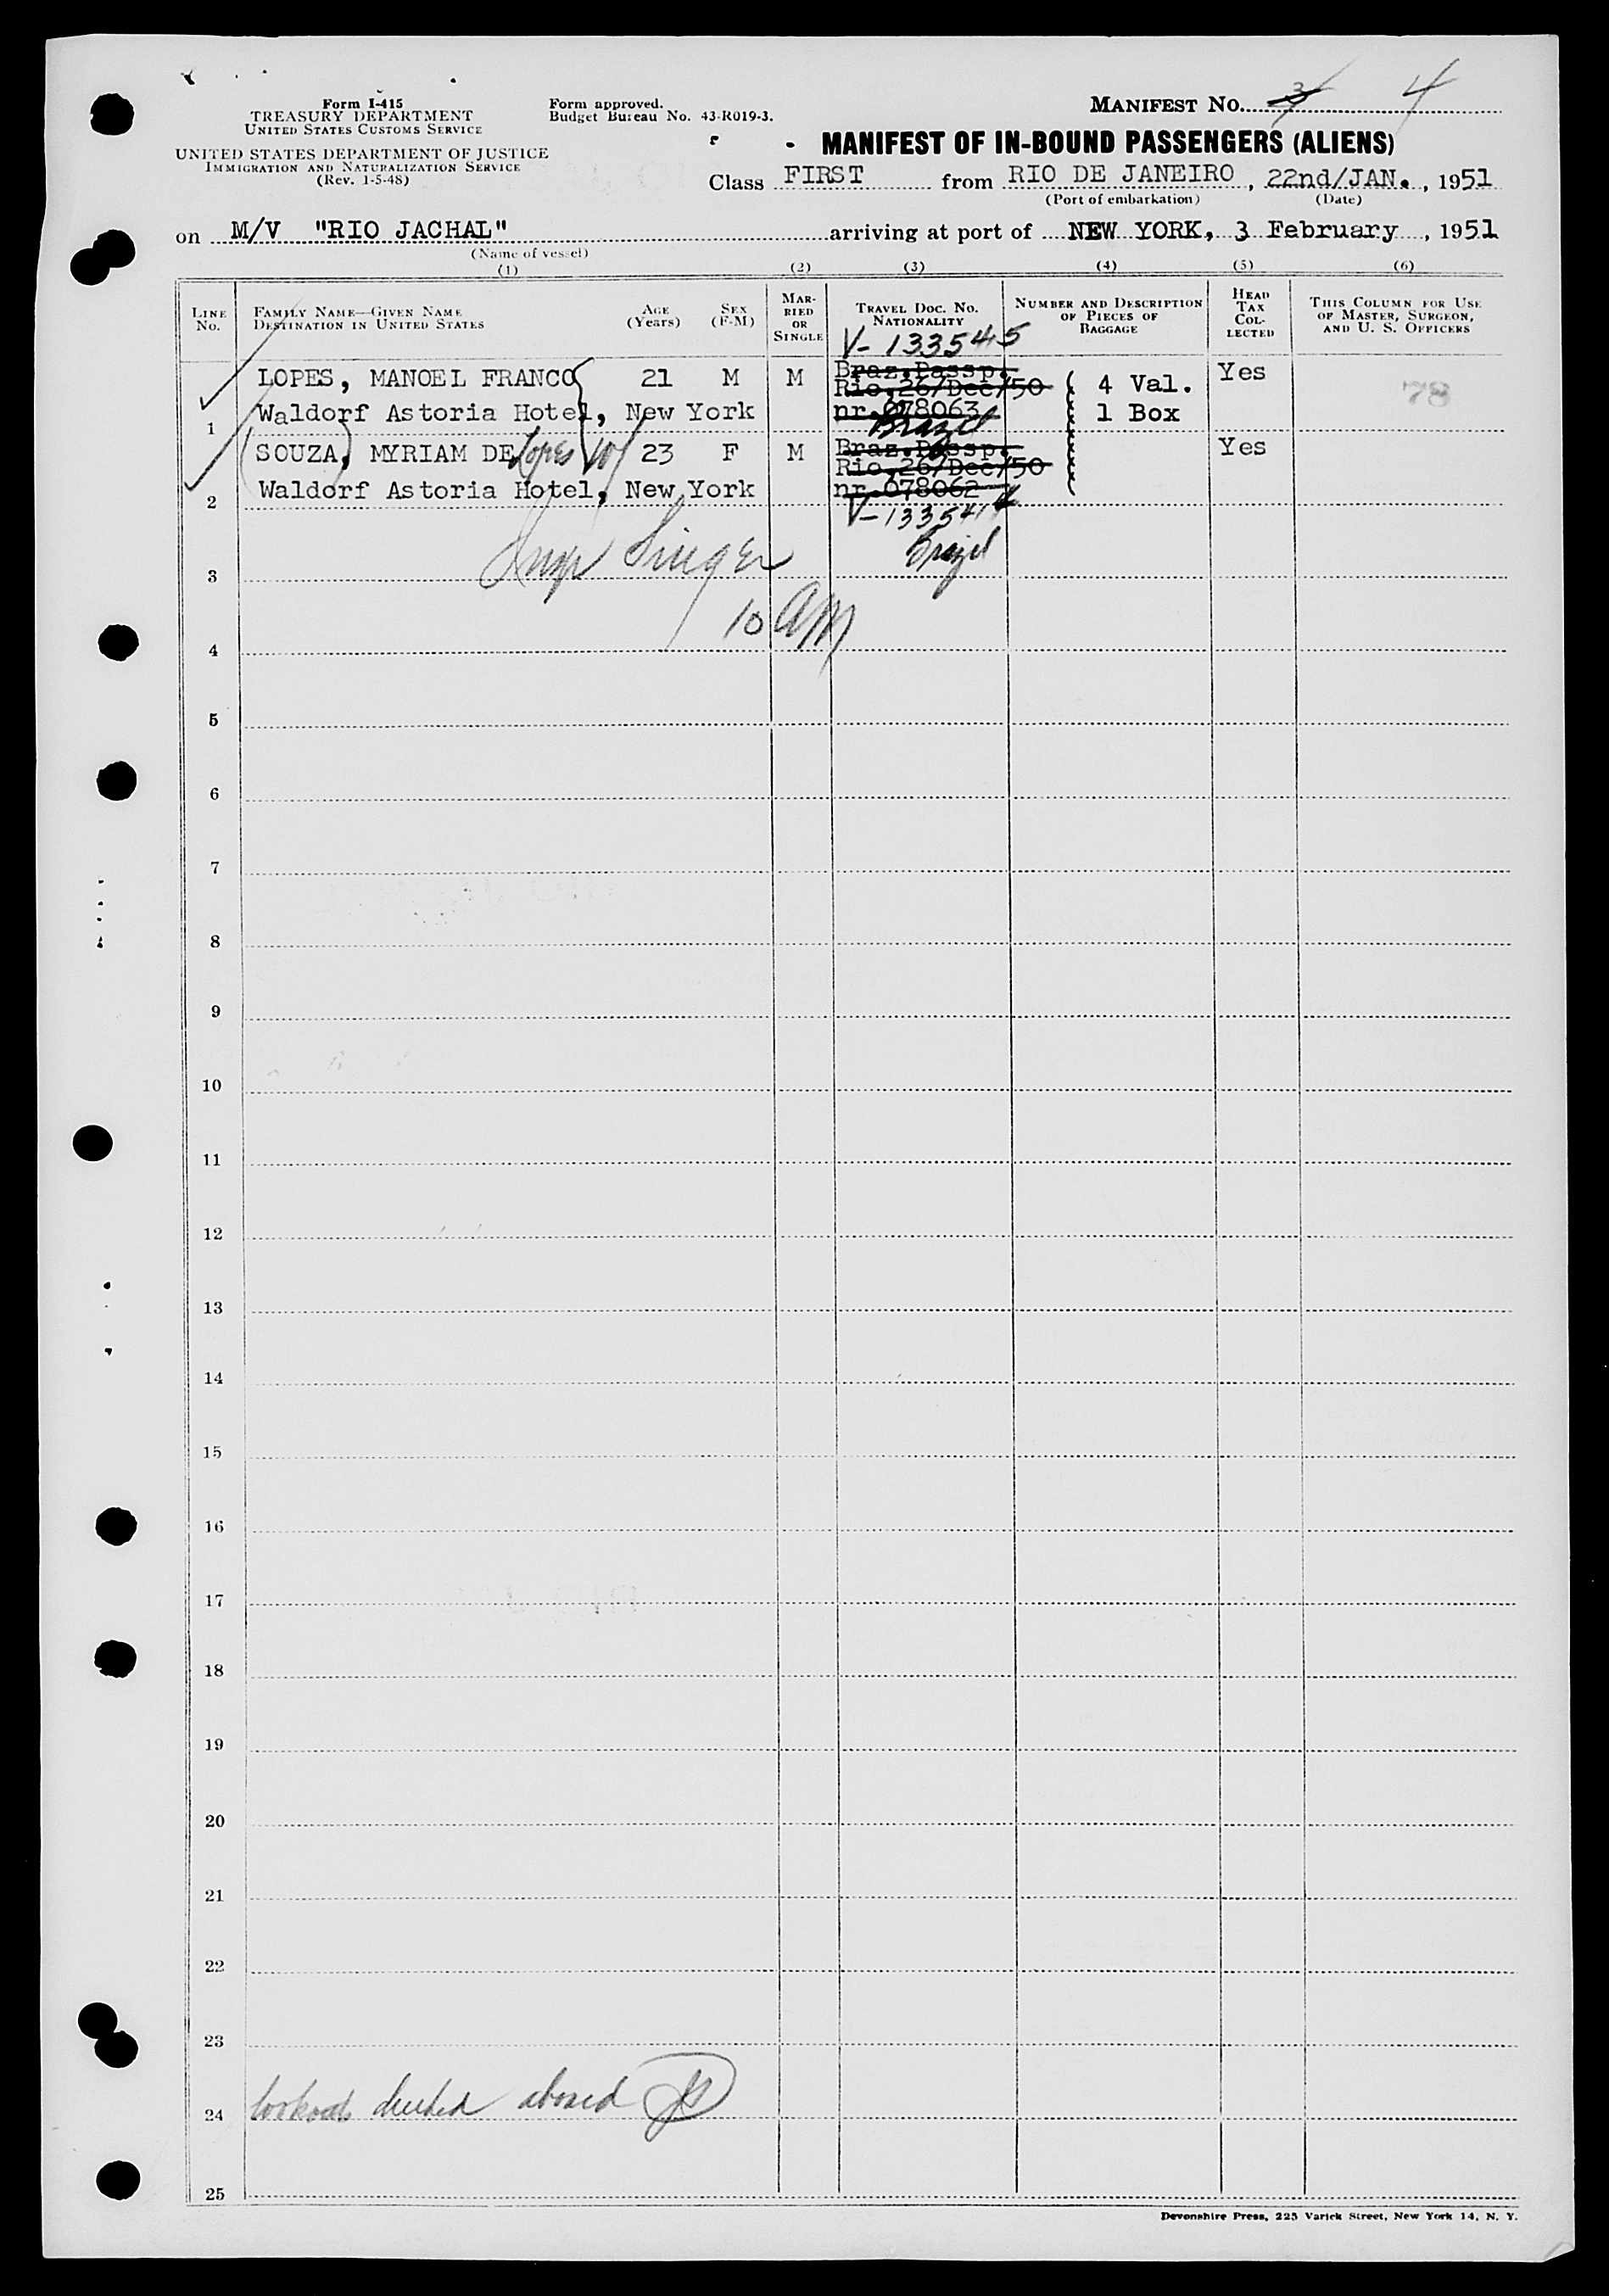 Form I-415
TREASURY DEPARTMENT
UNITED STATES CUSTOMS SERVICE
UNITED STATES DEPARTMENT OF JUSTICE
IMMIGRATION AND NATURALIZATION SERVICE
(Rev. 1-5-48)
Form approved.
Budget Bureau No. 43-R019-3.
MANIFEST NO. 3 4
MANIFEST OF IN-BOUND PASSENGERS (ALIENS)
Class FIRST from RIO DE JANEIRO, 22nd/JAN., 1951
(Port of embarkation) (Date)
on M/V "RIO JACHAL" arriving at port of NEW YORK, 3 February, 1951
(Name of vessel)
(1) (2) (3) (4) (5) (6)
LINE No. FAMILY NAME—GIVEN NAME DESTINATION IN UNITED STATES AGE (Years) SEX (F-M) MARRIED OR SINGLE TRAVEL DOC. NO. NATIONALITY NUMBER AND DESCRIPTION OF PIECES OF BAGGAGE HEAD TAX COLLECTED THIS COLUMN FOR USE OF MASTER, SURGEON, AND U. S. OFFICERS
V-133545
LOPES, MANOEL FRANCO 21 M M Braz.Passp. Yes
Rio,26/Dec/50 4 Val. 78
1 Waldorf Astoria Hotel, New York nr.078063 1 Box
Brazil
SOUZA, MYRIAM DE Lopes 23 F M Braz.Passp. Yes
Rio,26/Dec/50
2 Waldorf Astoria Hotel, New York nr.078062
V-133544
Insp Singer Brazil
3
10 AM
4
5
6
7
8
9
10
11
12
13
14
15
16
17
18
19
20
21
22
23
24 aboard
25
Devonshire Press, 225 Varick Street, New York 14, N. Y.